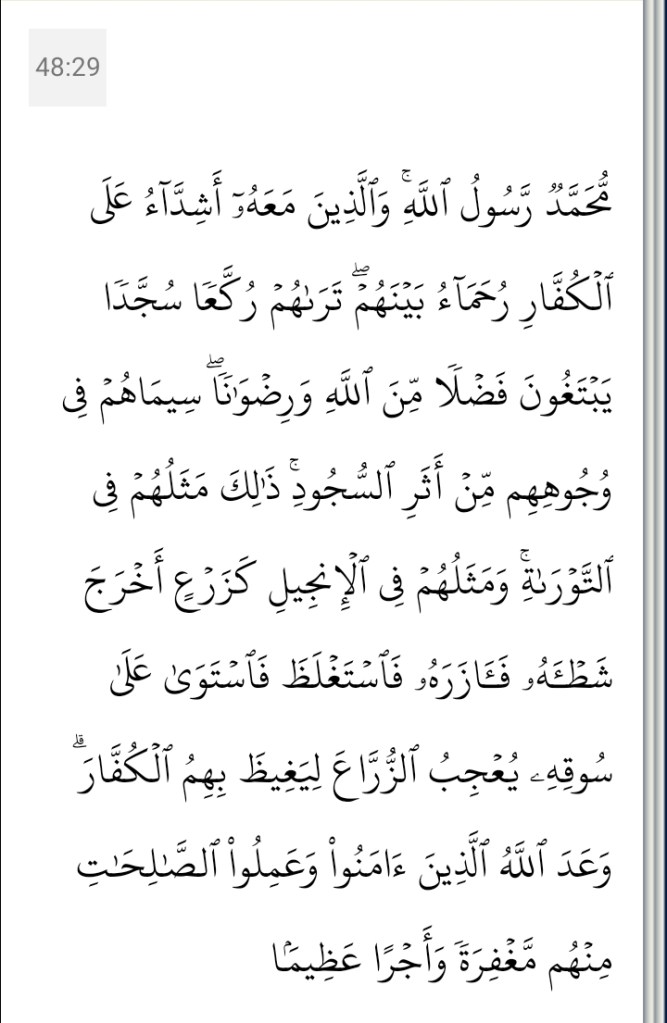 48:29
مُّحَمَّدٌ رَّسُولُ ٱللَّهِۚ وَٱلَّذِينَ مَعَهُۥٓ أَشِدَّآءُ عَلَى
ٱلۡكُفَّارِ رُحَمَآءُ بَيۡنَهُمۡۖ تَرَىٰهُمۡ رُكَّعٗا سُجَّدٗا
يَبۡتَغُونَ فَضۡلٗا مِّنَ ٱللَّهِ وَرِضۡوَٰنٗاۖ سِيمَاهُمۡ فِي
وُجُوهِهِم مِّنۡ أَثَرِ ٱلسُّجُودِۚ ذَٰلِكَ مَثَلُهُمۡ فِي
ٱلتَّوۡرَىٰةِۚ وَمَثَلُهُمۡ فِي ٱلۡإِنجِيلِ كَزَرۡعٍ أَخۡرَجَ
شَطۡـَٔهُۥ فَـَٔازَرَهُۥ فَٱسۡتَغۡلَظَ فَٱسۡتَوَىٰ عَلَىٰ
سُوقِهِۦ يُعۡجِبُ ٱلزُّرَّاعَ لِيَغِيظَ بِهِمُ ٱلۡكُفَّارَۗ
وَعَدَ ٱللَّهُ ٱلَّذِينَ ءَامَنُواْ وَعَمِلُواْ ٱلصَّٰلِحَٰتِ
مِنۡهُم مَّغۡفِرَةٗ وَأَجۡرًا عَظِيمَۢا